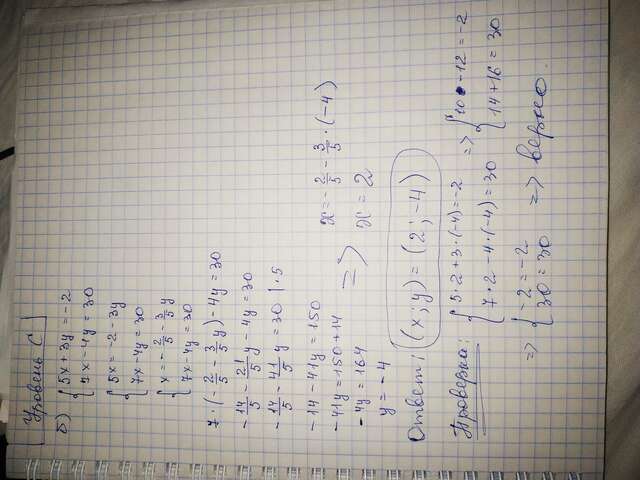 Уровень С
б) { 5x + 3y = -2
7x - 4y = 30
{ 5x = -2 - 3y
7x - 4y = 30
{ x = -2/5 - 3/5 y
7x - 4y = 30
7 · (-2/5 - 3/5 y) - 4y = 30
-14/5 - 21/5 y - 4y = 30
-14/5 - 41/5 y = 30 | · 5
-14 - 41y = 150
-41y = 150 + 14
-4y = 164
y = -4
=> x = -2/5 - 3/5 · (-4)
x = 2
Ответ: (x; y) = (2; -4)
Проверка: { 5 · 2 + 3 · (-4) = -2
7 · 2 - 4 · (-4) = 30
=> { 10 - 12 = -2
14 + 16 = 30
=> { -2 = -2
30 = 30
=> верно.